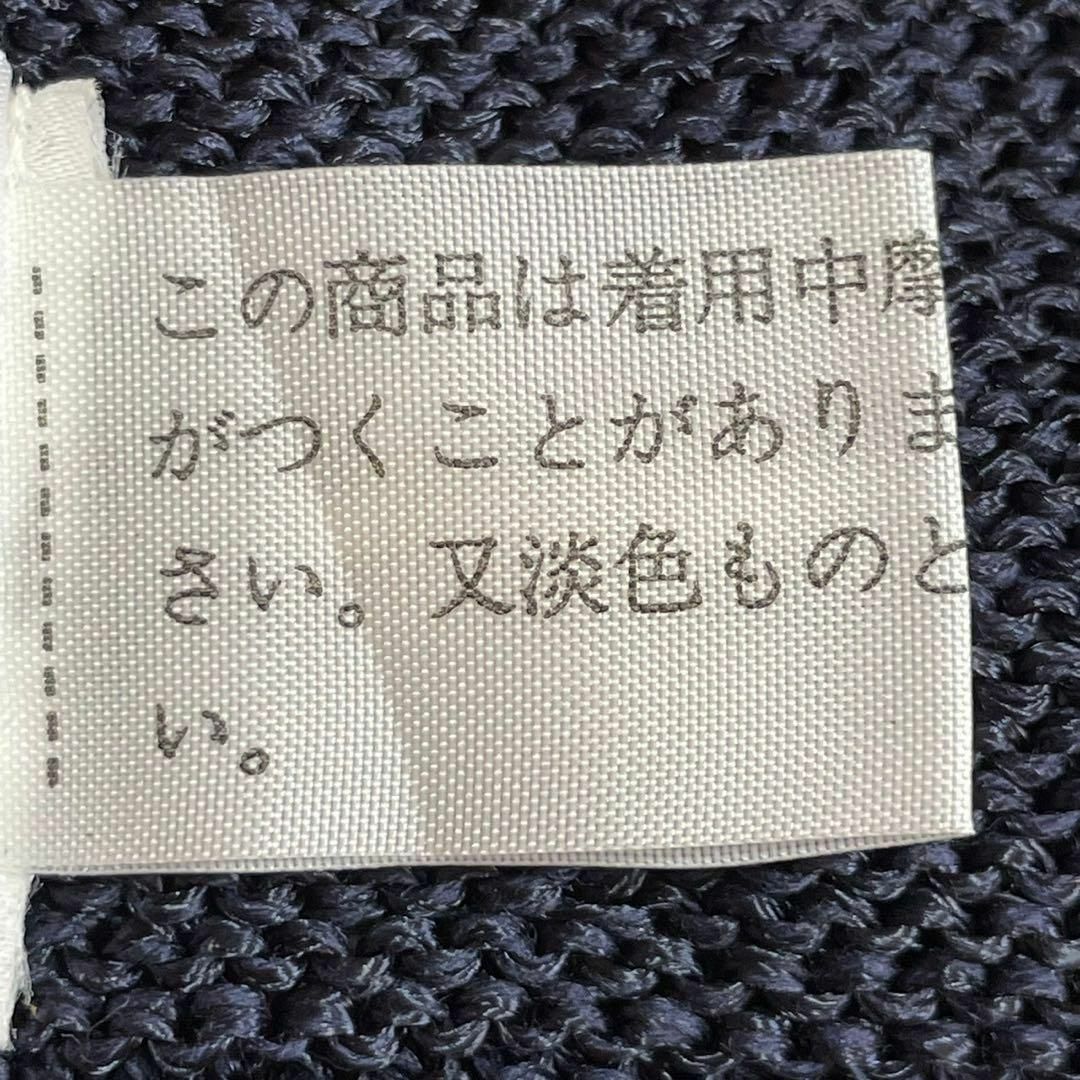 この商品は着用中摩
がつくことがありま
さい。又淡色ものと
い。